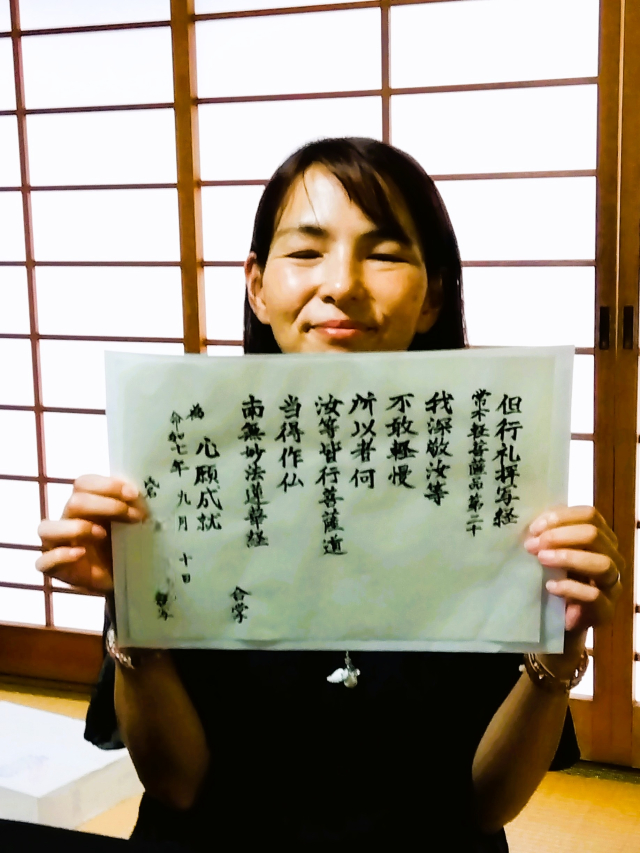 但行礼拝写経
常不軽菩薩品第二十
我深敬汝等
不敢軽慢
所以者何
汝等皆行菩薩道
当得作仏
南無妙法蓮華経
合掌
為 心願成就
令和七年 九月 十日
氏名